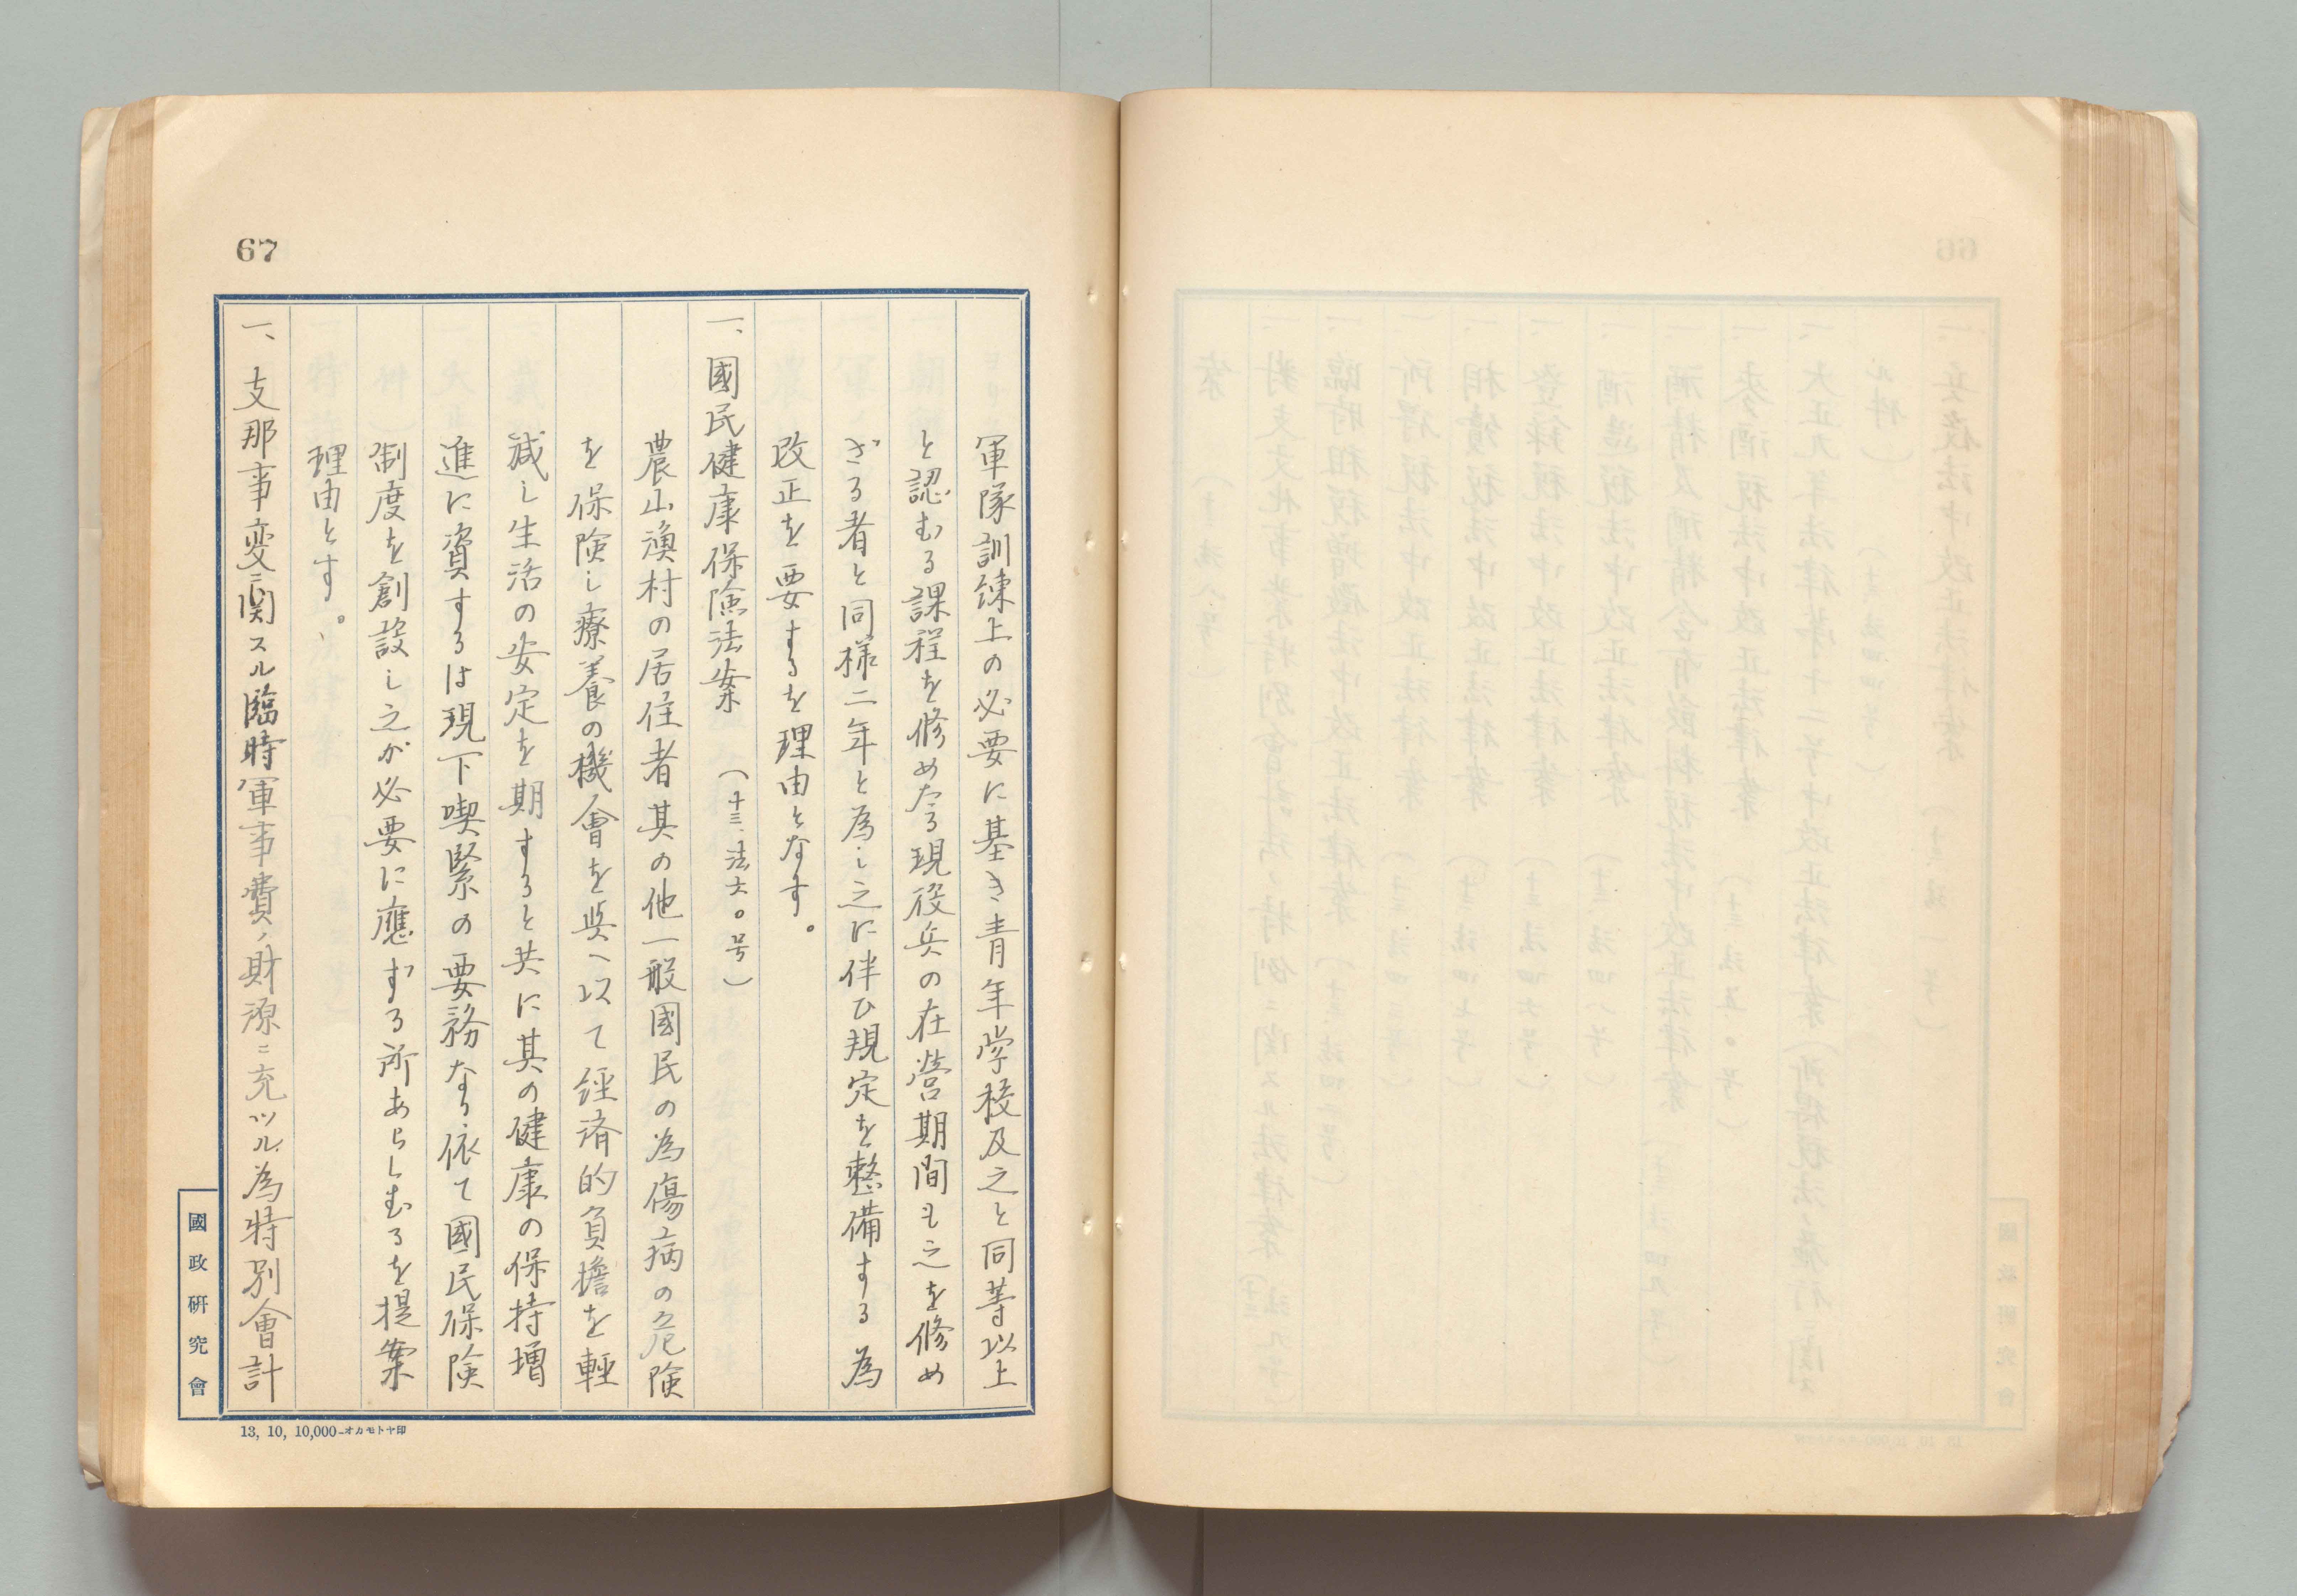 67
軍隊訓練上の必要に基き青年学校及之と同等以上
と認むる課程を修めたる現役兵の在営期間も之を修め
ざる者と同様二年と為し之に伴ひ規定を整備する為
改正を要するを理由となす。
一、國民健康保険法案 (十三.法六〇号)
農山漁村の居住者其の他一般國民の為傷病の危険
を保険し療養の機會を與へ以て経済的負擔を輕
減し生活の安定を期すると共に其の健康の保持増
進に資するは現下喫緊の要務なり.依て國民保険
制度を創設し之が必要に應ずる所あらしむるを提案
理由とす。
一、支那事変ニ関スル臨時軍事費ノ財源ニ充ツル為特別會計
國政研究會
13, 10, 10,000-オカモトヤ印